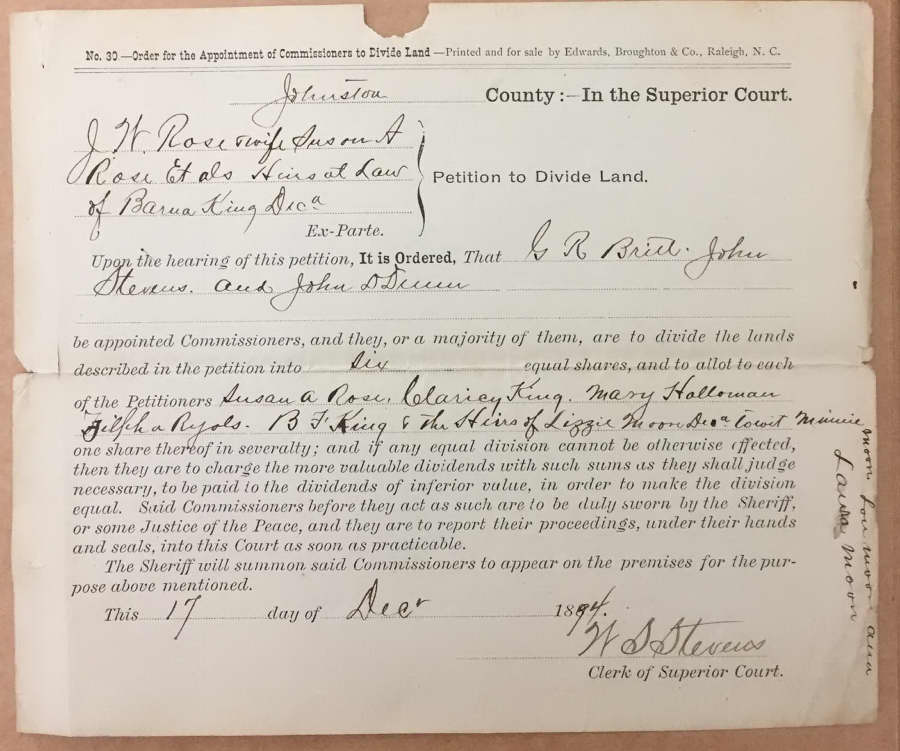 No. 30 —Order for the Appointment of Commissioners to Divide Land —Printed and for sale by Edwards, Broughton & Co., Raleigh, N. C.
Johnston County :—In the Superior Court.
J. W. Rose & wife Susan A
Rose Et als Heirs at Law
of Barna King Decd
Petition to Divide Land.
Ex-Parte.
Upon the hearing of this petition, It is Ordered, That G R Britt. John
Stevens. and John D
be appointed Commissioners, and they, or a majority of them, are to divide the lands
described in the petition into six equal shares, and to allot to each
of the Petitioners Susan A Rose. Claricy King. Mary Holloman
Zilpha Ryals. B F King & the Heirs of Lizzie Moon Decd towit Minnie
Moon Lou Moon and
Laura Moon
one share thereof in severalty; and if any equal division cannot be otherwise affected,
then they are to charge the more valuable dividends with such sums as they shall judge
necessary, to be paid to the dividends of inferior value, in order to make the division
equal. Said Commissioners before they act as such are to be duly sworn by the Sheriff,
or some Justice of the Peace, and they are to report their proceedings, under their hands
and seals, into this Court as soon as practicable.
The Sheriff will summon said Commissioners to appear on the premises for the pur-
pose above mentioned.
This 17 day of Decr 1894.
W S Stevens
Clerk of Superior Court.